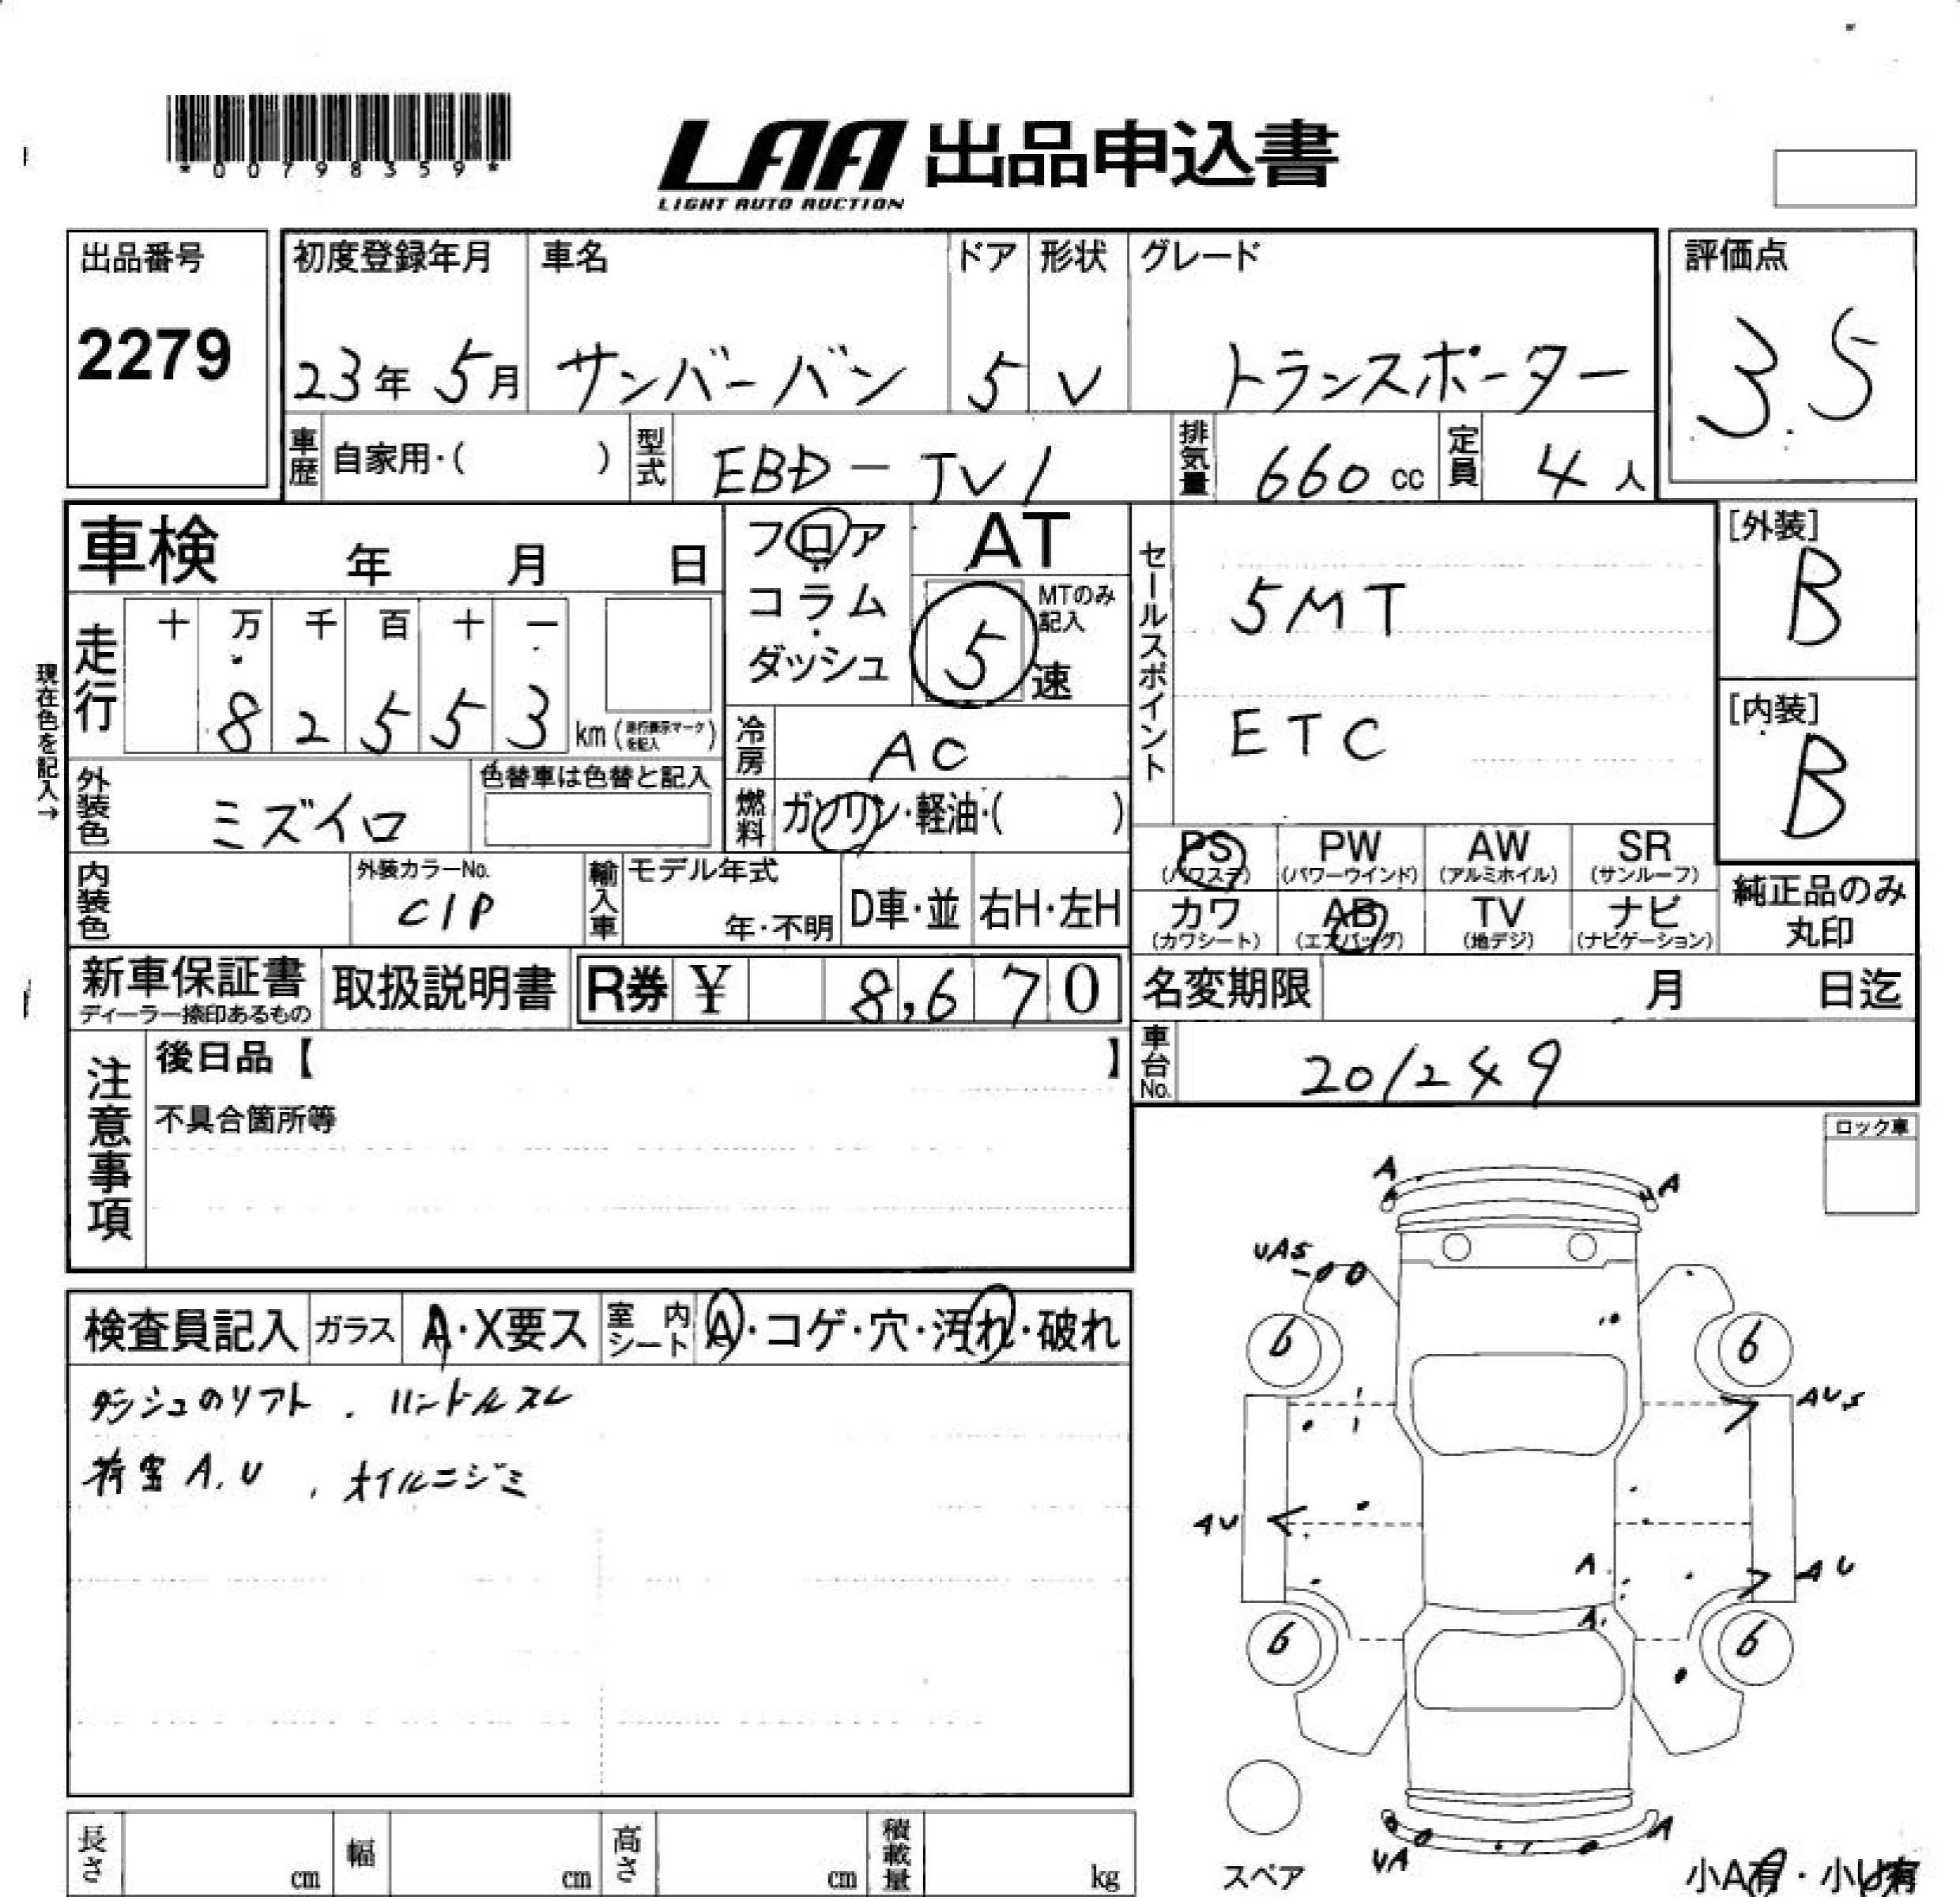 *00798359*
LAA 出品申込書
LIGHT AUTO AUCTION
出品番号
2279
初度登録年月
23年 5月
車名
サンバーバン
ドア
5
形状
V
グレード
トランスポーター
評価点
3.5
車歴 自家用・( )
型式 EBD-TV1
排気量 660 cc
定員 4 人
車検 年 月 日
フロア
コラム
・
ダッシュ
AT
MTのみ
記入
5 速
セールスポイント
5MT
ETC
[外装]
B
[内装]
B
現在色を記入→
走行 十 万 千 百 十 一
8 2 5 5 3 km (走行表示マークを記入)
冷房 AC
外装色 ミズイロ
色替車は色替と記入
燃料 ガソリン・軽油・( )
PS (パワステ)
PW (パワーウインド)
AW (アルミホイル)
SR (サンルーフ)
カワ (カワシート)
AB (エアバッグ)
TV (地デジ)
ナビ (ナビゲーション)
純正品のみ
丸印
内装色
外装カラーNo.
C1P
輸入車
モデル年式
年・不明
D車・並
右H・左H
新車保証書
ディーラー捺印あるもの
取扱説明書
R券 ¥ 8,670
名変期限 月 日迄
車台No. 201249
注意事項
後日品【 】
不具合箇所等
ロック車
検査員記入
ガラス A・X要ス
室内シート A・コゲ・穴・汚れ・破れ
ダッシュのリフト . ハンドルスレ
荷室 A.U , オイルニジミ
A
A
UAS
6
6
AUS
AU
A
AU
A
6
6
スペア
UA
A
小A有・小U有
長さ cm
幅 cm
高さ cm
積載量 kg